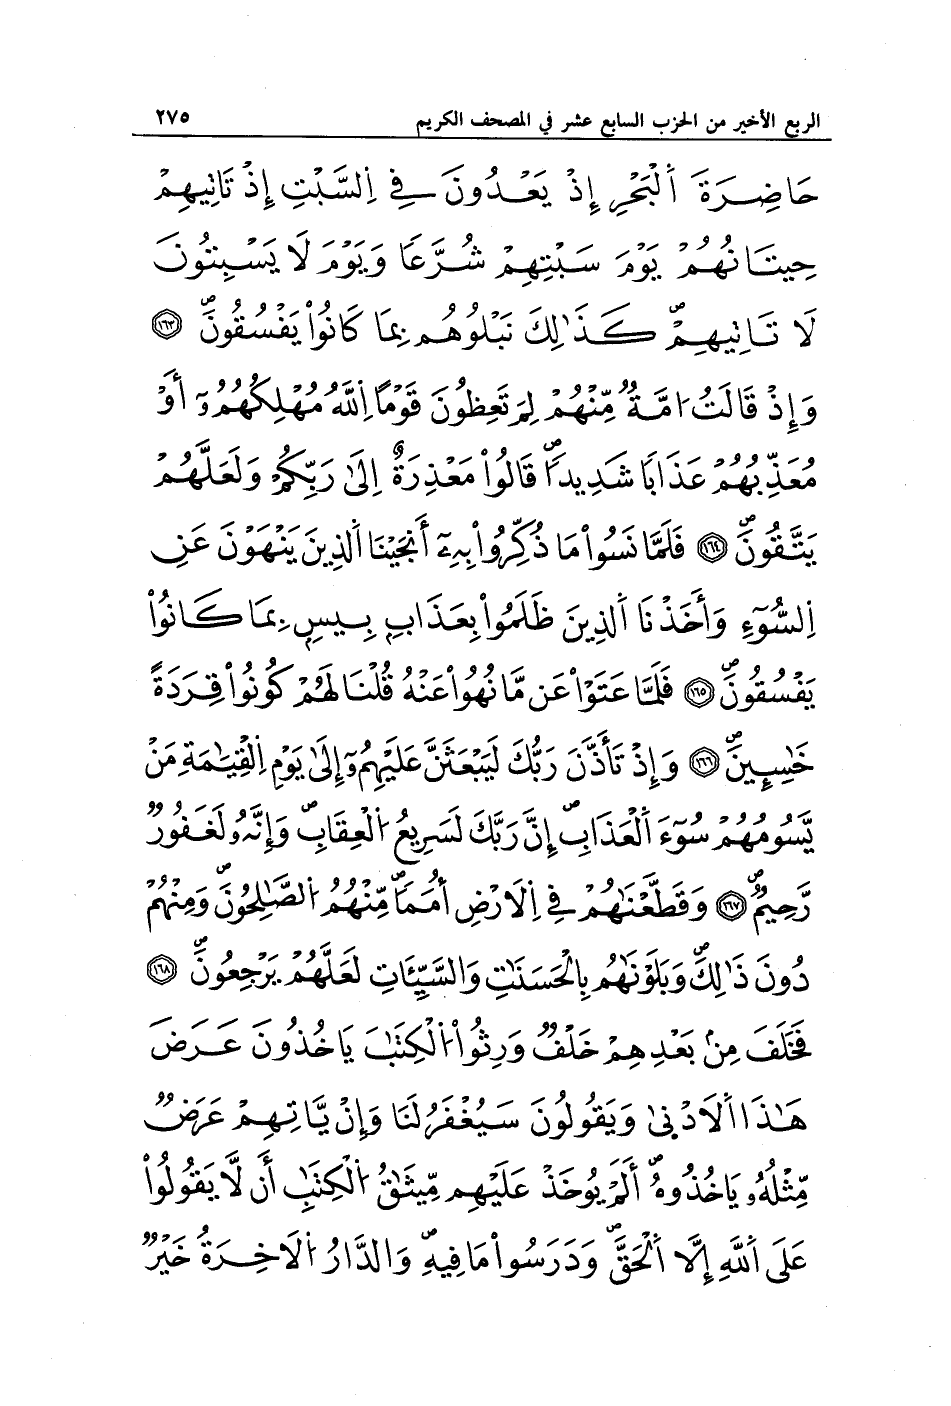 الربع الأخير من الحزب السابع عشر في المصحف الكريم ٢٧٥
حَاضِرَةَ اَ۬لْبَحْرِ إِذْ يَعْدُونَ فِے اِ۬لسَّبْتِ إِذْ تَاتِيهِمْ
حِيتَانُهُمْ يَوْمَ سَبْتِهِمْ شُرَّعاً وَيَوْمَ لَا يَسْبِتُونَ
لَا تَاتِيهِمْۖ كَذَٰلِكَ نَبْلُوهُم بِمَا كَانُواْ يَفْسُقُونَۖ ١٦٣
وَإِذْ قَالَتُ ا۟مَّةٌ مِّنْهُمْ لِمَ تَعِظُونَ قَوْماً اِ۬للَّهُ مُهْلِكُهُمُۥٓ أَوْ
مُعَذِّبُهُمْ عَذَاباً شَدِيداًۖ قَالُواْ مَعْذِرَةٌ اِلَىٰ رَبِّكُمْ وَلَعَلَّهُمْ
يَتَّقُونَۖ ١٦٤ فَلَمَّا نَسُواْ مَا ذُكِّرُواْ بِهِۦٓ أَنجَيْنَا اَ۬لذِينَ يَنْهَوْنَ عَنِ
اِ۬لسُّوٓءِ وَأَخَذْنَا اَ۬لذِينَ ظَلَمُواْ بِعَذَابِۢ بِيسِۢ بِمَا كَانُواْ
يَفْسُقُونَۖ ١٦٥ فَلَمَّا عَتَوْاْ عَن مَّا نُهُواْ عَنْهُ قُلْنَا لَهُمْ كُونُواْ قِرَدَةً
خَٰسِـِٕينَۖ ١٦٦ وَإِذْ تَأَذَّنَ رَبُّكَ لَيَبْعَثَنَّ عَلَيْهِمُۥٓ إِلَىٰ يَوْمِ اِ۬لْقِيَٰمَةِ مَنْ
يَّسُومُهُمْ سُوٓءَ اَ۬لْعَذَابِۖ إِنَّ رَبَّكَ لَسَرِيعُ اُ۬لْعِقَابِۖ وَإِنَّهُۥ لَغَفُورٌ
رَّحِيمٌۖ ١٦٧ وَقَطَّعْنَٰهُمْ فِے اِ۬لَارْضِ أُمَماًۖ مِّنْهُمُ اُ۬لصَّٰلِحُونَۖ وَمِنْهُمْ
دُونَ ذَٰلِكَۖ وَبَلَوْنَٰهُم بِالْحَسَنَٰتِ وَالسَّيِّـَٔاتِ لَعَلَّهُمْ يَرْجِعُونَۖ ١٦٨
فَخَلَفَ مِنۢ بَعْدِهِمْ خَلْفٌ وَرِثُواْ اُ۬لْكِتَٰبَ يَاخُذُونَ عَرَضَ
هَٰذَا اَ۬لَادْنَىٰ وَيَقُولُونَ سَيُغْفَرُ لَنَا وَإِنْ يَّاتِهِمْ عَرَضٌ
مِّثْلُهُۥ يَاخُذُوهُۖ أَلَمْ يُوخَذْ عَلَيْهِم مِّيثَٰقُ اُ۬لْكِتَٰبِ أَن لَّا يَقُولُواْ
عَلَى اَ۬للَّهِ إِلَّا اَ۬لْحَقَّۖ وَدَرَسُواْ مَا فِيهِۖ وَالدَّارُ اُ۬لَاخِرَةُ خَيْرٌ